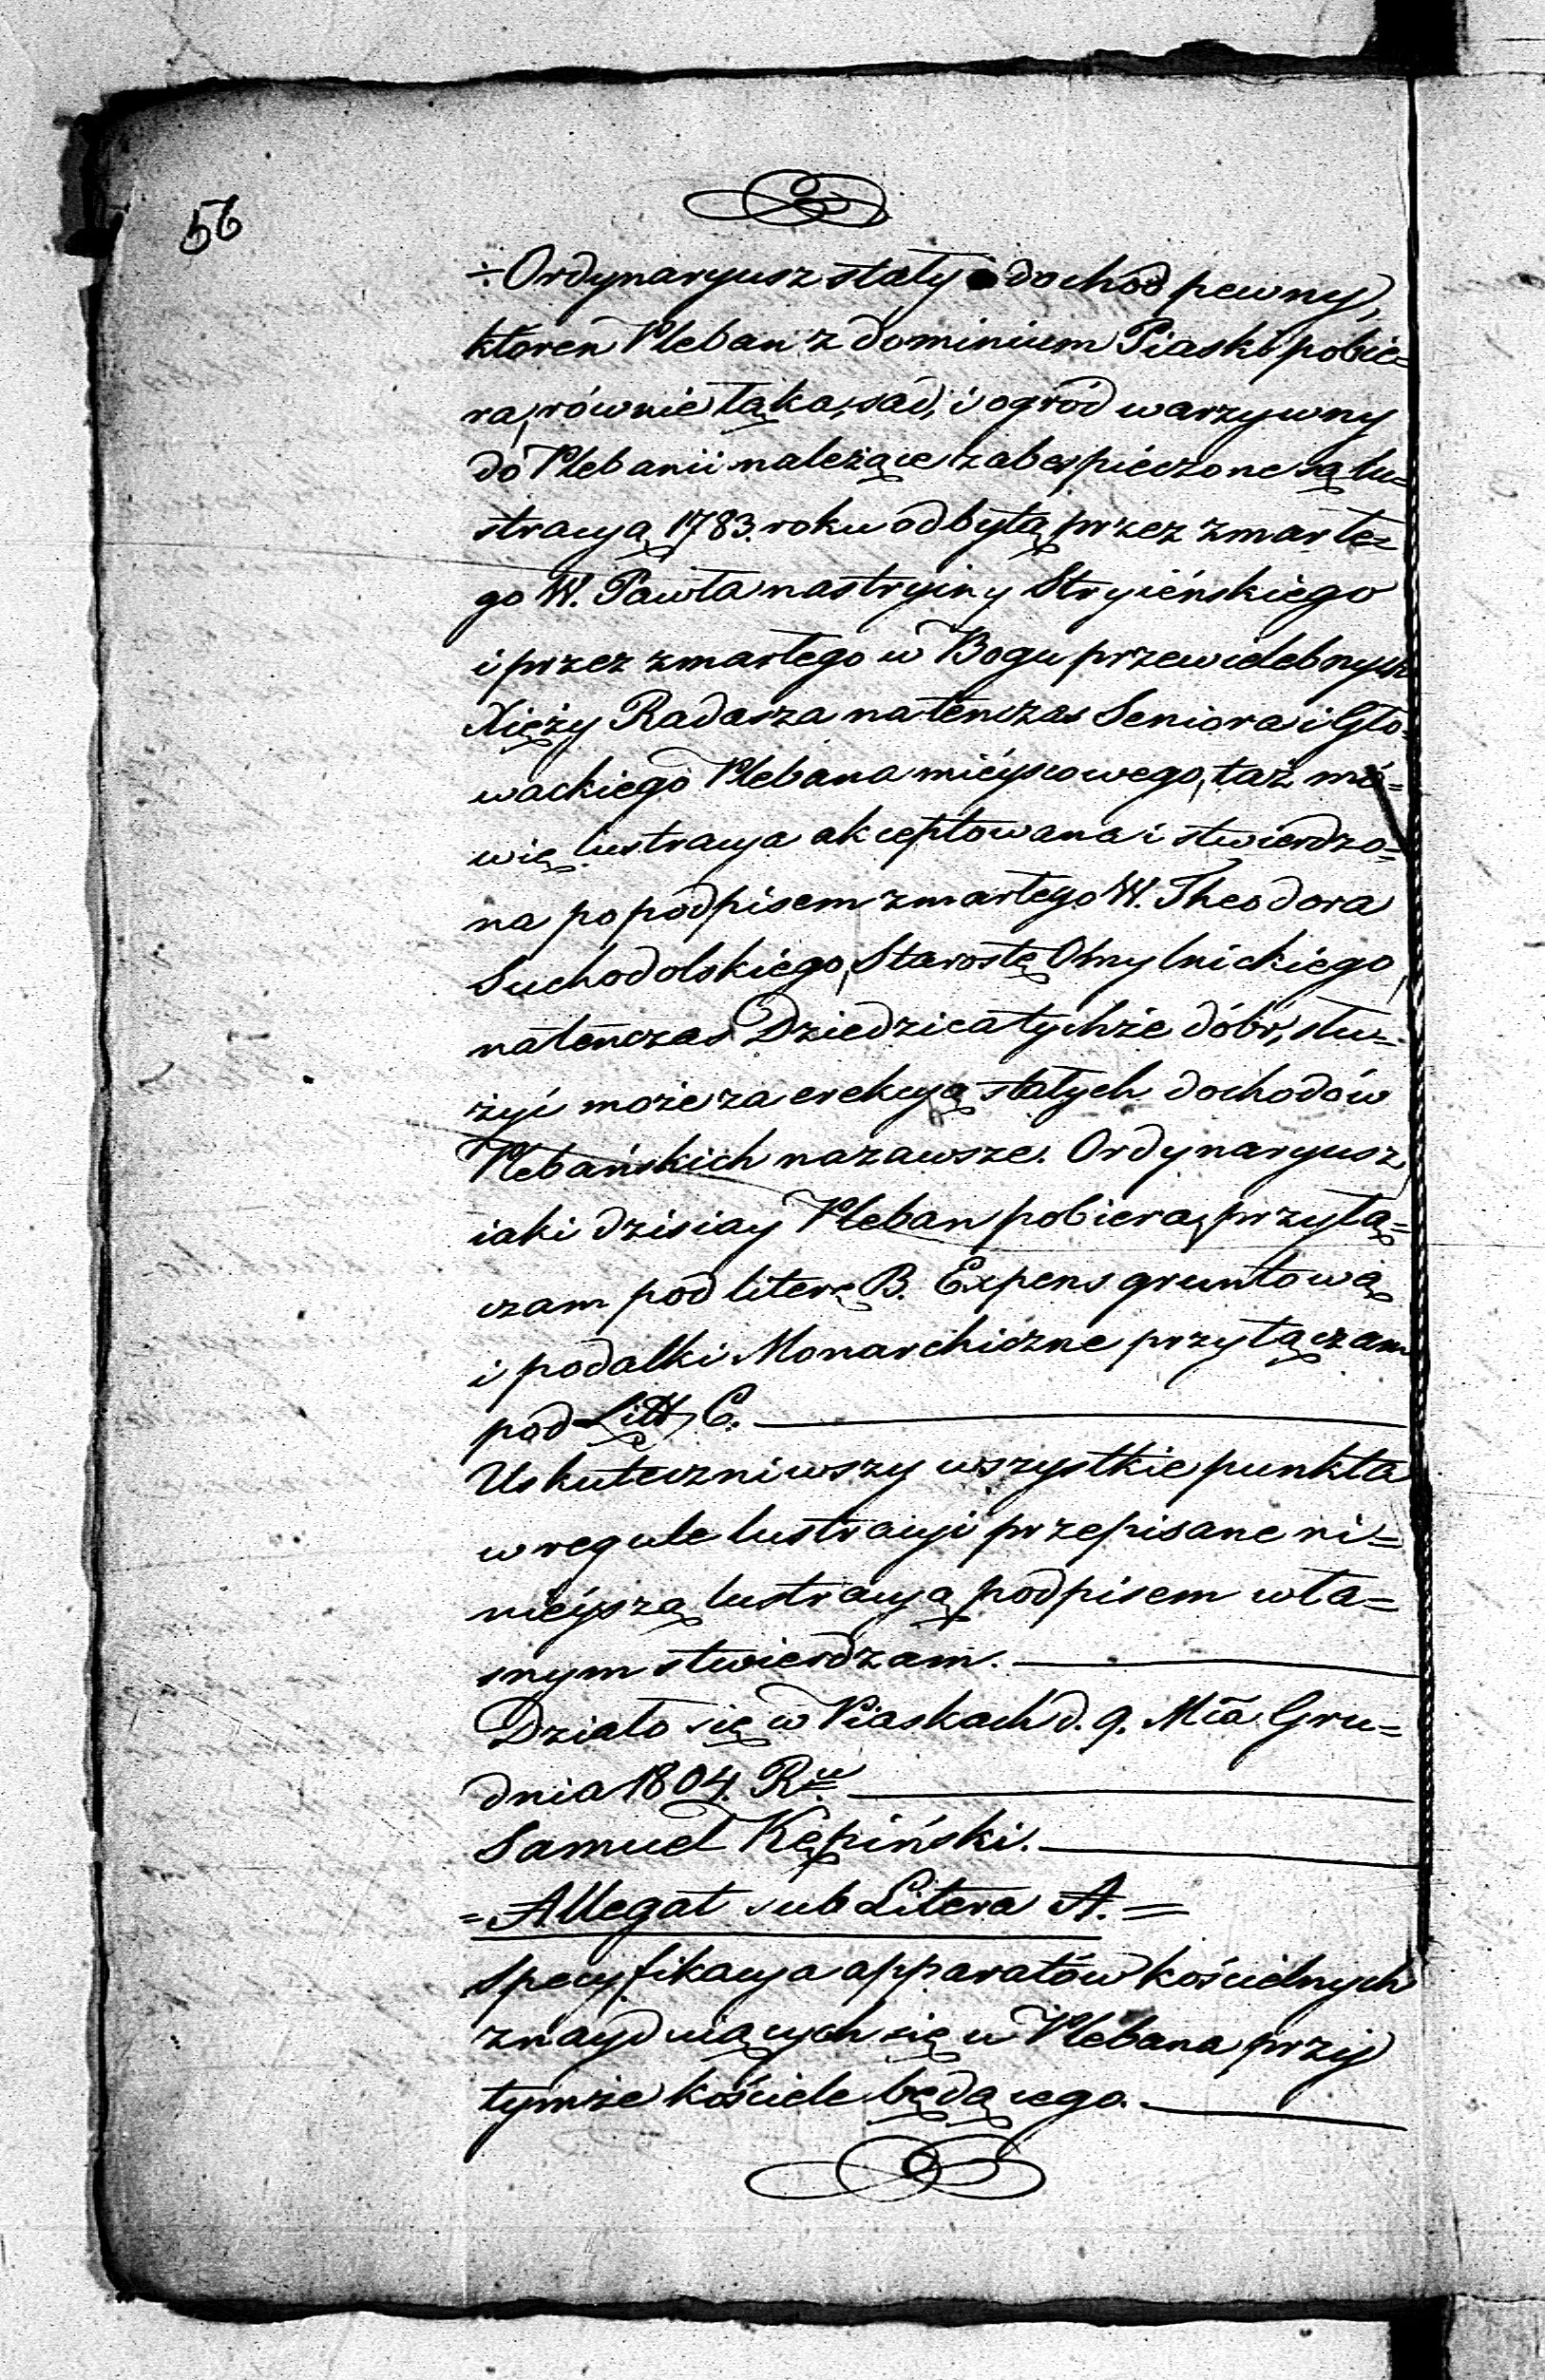 56
÷ Ordynaryusz stały dochód pewny,
ktoren Pleban z dominium Piaski pobie=
ra, równie łąka, sad, i ogród warzywny
do Plebanii należące zabespieczone są lu=
stracyą 1783. roku odbytą przez zmarłe=
go W. Pawła nastryiny Stryieńskiego
i przez zmarłego w Bogu przewielebnych
Xięży Radasza natenczas Seniora i Gło=
wackiego Plebana mieyscowego, taż mó=
wię lustracya akceptowana i stwierdzo=
na po podpisem zmarłego W. Theodora
Suchodolskiego, Starostę
natenczas Dziedzica tychże dóbr, słu=
żyć może za erekcyą stałych dochodów
Plebańskich nazawsze. Ordynaryusz,
iaki dzisiay Pleban pobiera, przyłą=
czam pod literę B. Expens gruntową
i podatki Monarchiczne przyłączam
pod Litt, C.
Uskuteczniwszy wszystkie punkta
w regule lustracyi przepisane ni=
nieyszą lustracyą podpisem wła=
snym stwierdzam.
Działo się w Piaskach d. 9. Mca Gru=
dnia 1804. Ru.
Samuel Kępiński.
= Allegat sub Litera A. =
Specyfikacya apparatów kościelnych
znayduiących się u Plebana przy
tymże kościele będącego.